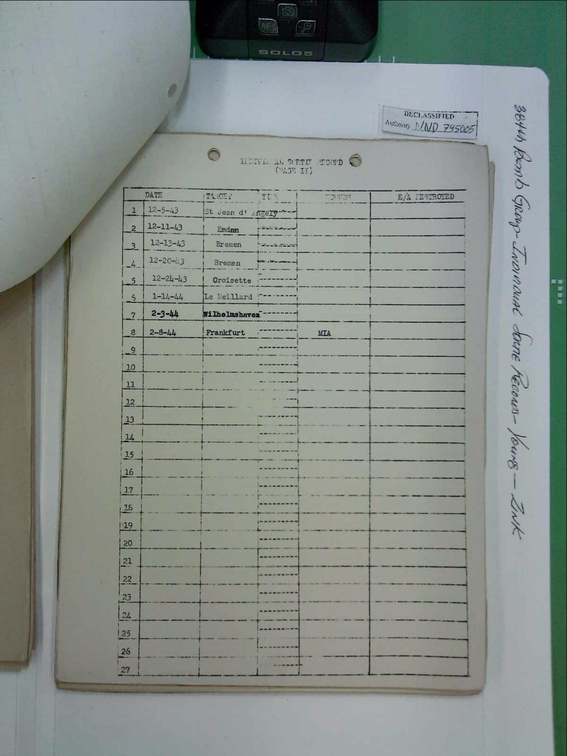 SOLOS
DECLASSIFIED
Authority NND 745005
INDIVIDUAL SORTIE RECORD
(PAGE II)
DATE TARGET TIME REMARKS E/A DESTROYED
1 12-5-43 St Jean d' Angely
2 12-11-43 Emden
3 12-13-43 Bremen
4 12-20-43 Bremen
5 12-24-43 Croisette
6 1-14-44 Le Meillard
7 2-3-44 Wilhelmshaven
8 2-8-44 Frankfurt MIA
9
10
11
12
13
14
15
16
17
18
19
20
21
22
23
24
25
26
27
384th Bomb Group- Individual Sortie Records- Young — Zink